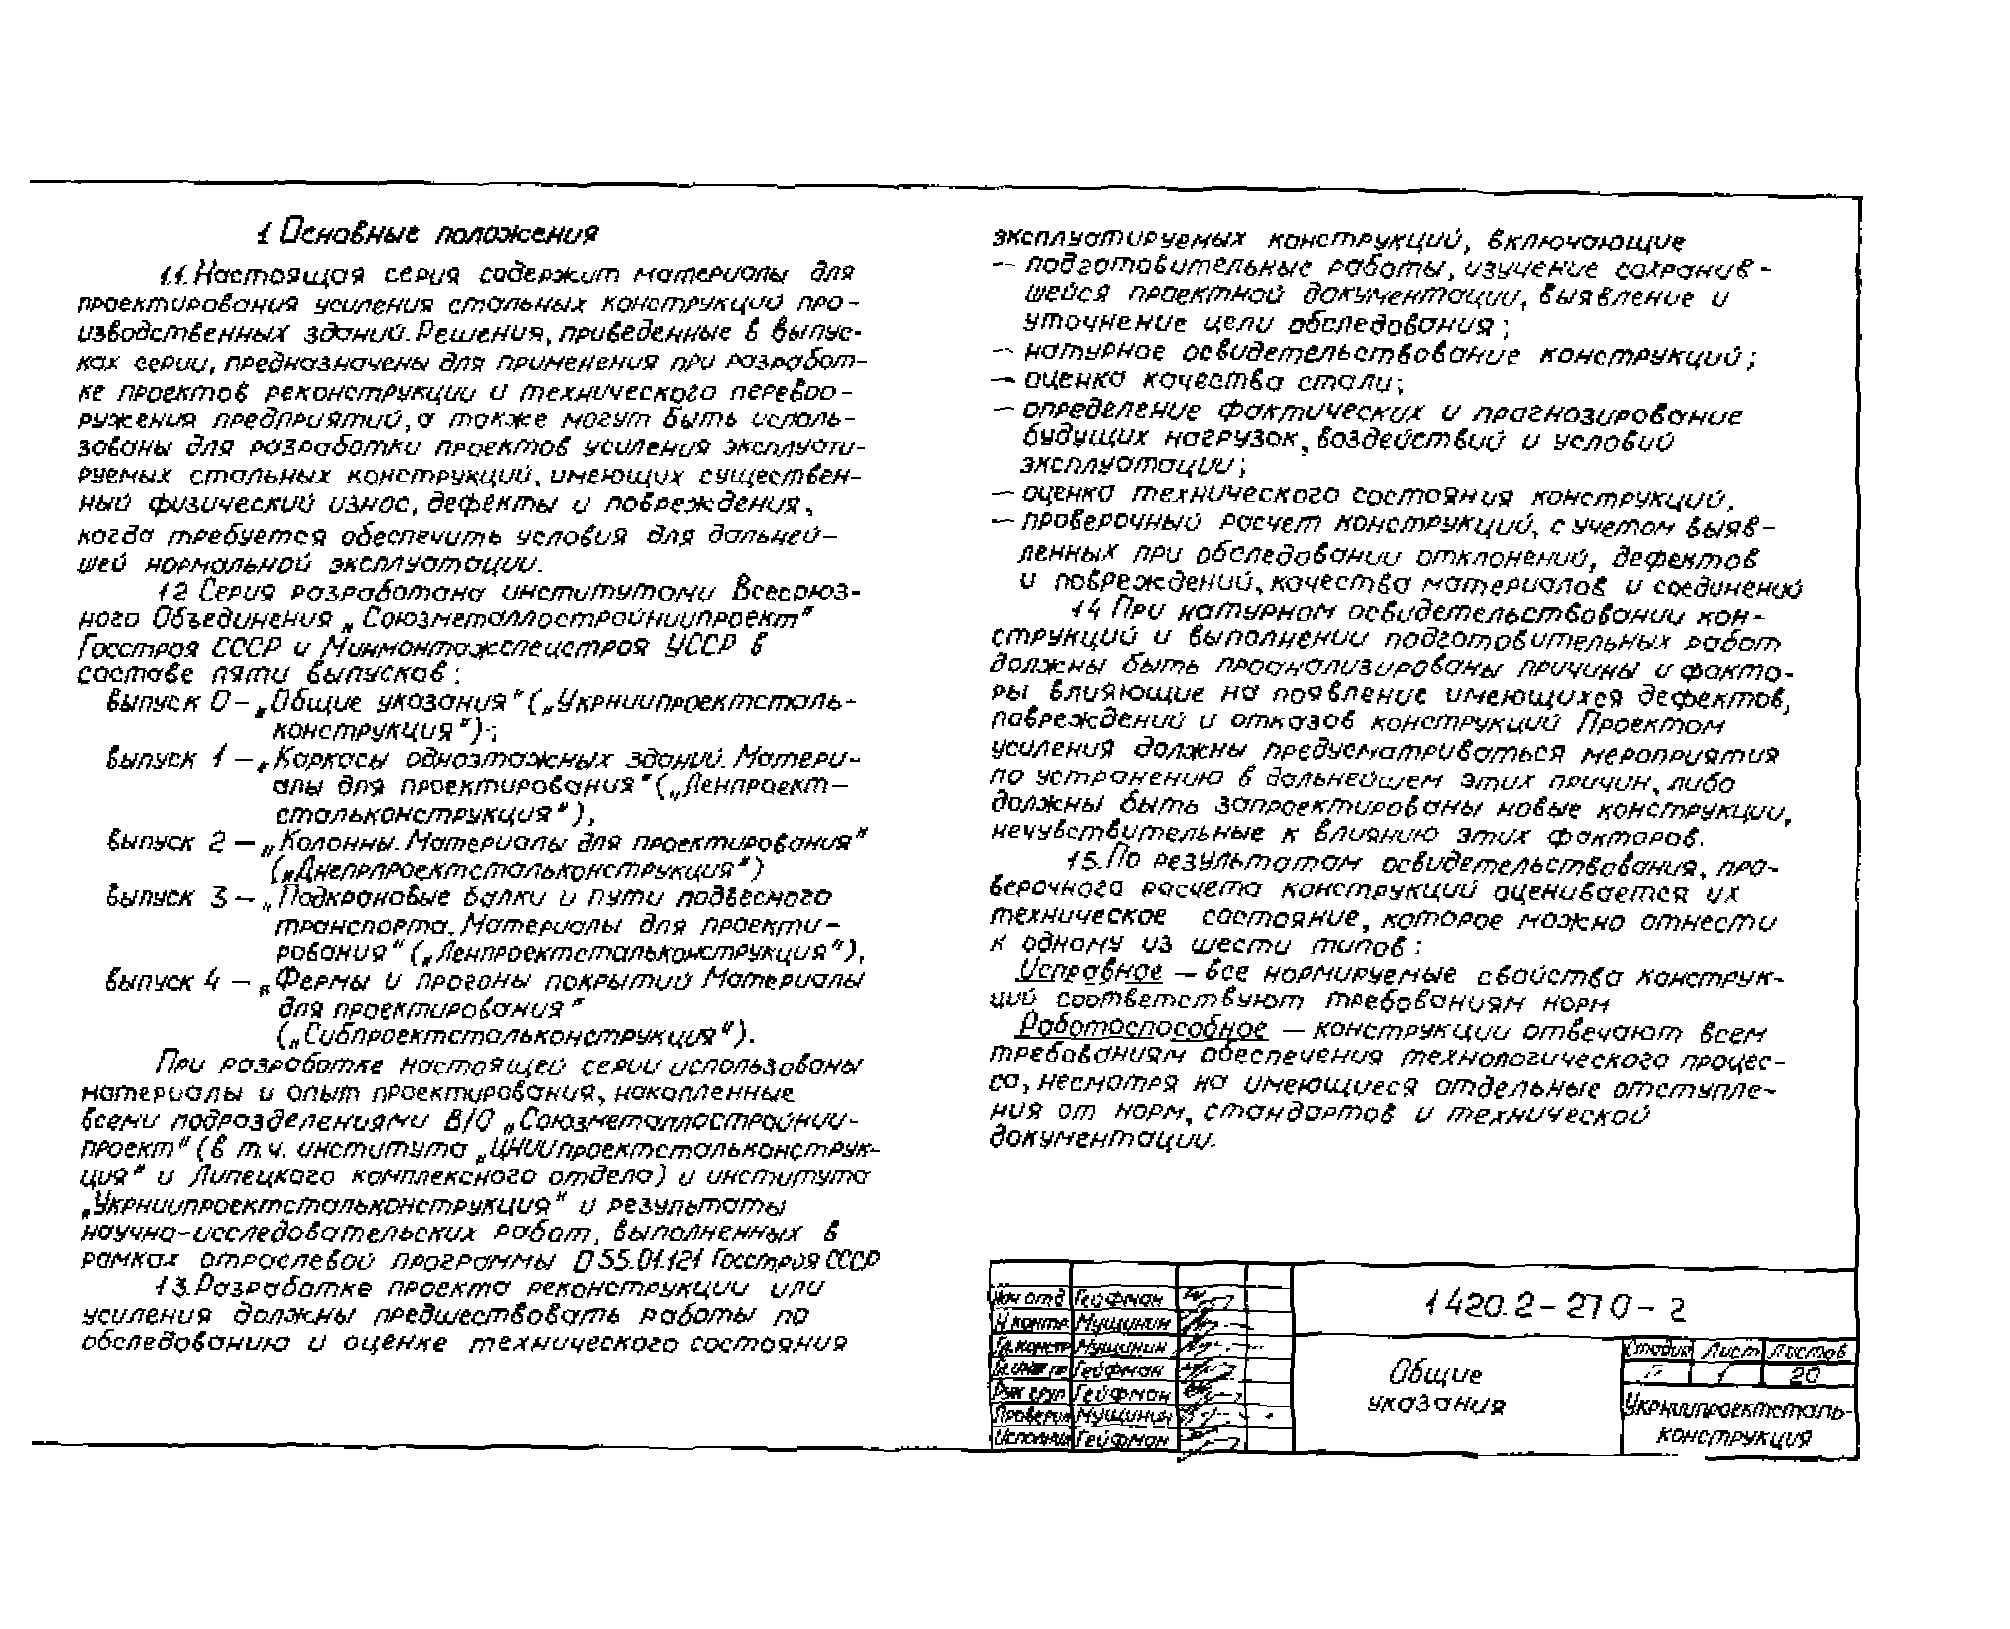 1 Основные положения
1.1. Настоящая серия содержит материалы для
проектирования усиления стальных конструкций про-
изводственных зданий. Решения, приведенные в выпус-
ках серии, предназначены для применения при разработ-
ке проектов реконструкции и технического перевоо-
ружения предприятий, а также могут быть исполь-
зованы для разработки проектов усиления эксплуати-
руемых стальных конструкций, имеющих существен-
ный физический износ, дефекты и повреждения,
когда требуется обеспечить условия для дальней-
шей нормальной эксплуатации.
1 2 Серия разработана институтами Всесоюз-
ного Объединения „Союзметаллостройниипроект"
Госстроя СССР и Минмонтажспецстроя УССР в
составе пяти выпусков:
выпуск 0 – „Общие указания" („Укрниипроектсталь-
конструкция");
выпуск 1 – „Каркасы одноэтажных зданий. Матери-
алы для проектирования" („Ленпроект-
стальконструкция"),
выпуск 2 – „Колонны. Материалы для проектирования"
(„Днепрпроектстальконструкция")
выпуск 3 – „Подкрановые балки и пути подвесного
транспорта. Материалы для проекти-
рования" („Ленпроектстальконструкция"),
выпуск 4 – „Фермы и прогоны покрытий Материалы
для проектирования"
(„Сибпроектстальконструкция").
При разработке настоящей серии использованы
материалы и опыт проектирования, накопленные
всеми подразделениями В/О „Союзметаллостройнии-
проект" (в т.ч. института „ЦНИИпроектстальконструк-
ция" и Липецкого комплексного отдела) и института
„Укрниипроектстальконструкция" и результаты
научно-исследовательских работ, выполненных в
рамках отраслевой программы 0 55.01.121 Госстроя СССР
1 3. Разработке проекта реконструкции или
усиления должны предшествовать работы по
обследованию и оценке технического состояния
эксплуатируемых конструкций, включающие
– подготовительные работы, изучение сохранив-
шейся проектной документации, выявление и
уточнение цели обследования;
– натурное освидетельствование конструкций;
– оценка качества стали;
– определение фактических и прогнозирование
будущих нагрузок, воздействий и условий
эксплуатации;
– оценка технического состояния конструкций,
– проверочный расчет конструкций, с учетом выяв-
ленных при обследовании отклонений, дефектов
и повреждений, качества материалов и соединений
1 4 При натурном освидетельствовании кон-
струкций и выполнении подготовительных работ
должны быть проанализированы причины и факто-
ры влияющие на появление имеющихся дефектов,
повреждений и отказов конструкций Проектом
усиления должны предусматриваться мероприятия
по устранению в дальнейшем этих причин, либо
должны быть запроектированы новые конструкции,
нечувствительные к влиянию этих факторов.
1 5. По результатам освидетельствования, про-
верочного расчета конструкций оценивается их
техническое состояние, которое можно отнести
к одному из шести типов:
Исправное – все нормируемые свойства конструк-
ций соответствуют требованиям норм
Работоспособное – конструкции отвечают всем
требованиям обеспечения технологического процес-
са, несмотря на имеющиеся отдельные отступле-
ния от норм, стандартов и технической
документации.
Нач отд Гейфман
Н контр Мущинин
Гл.констр Мущинин
Гл.инж пр Гейфман
Рук груп Гейфман
Проверил Мущинин
Исполнил Гейфман
1 420.2 – 27 0 – 2
Общие
указания
Стадия Лист Листов
1 20
Укрниипроектсталь-
конструкция